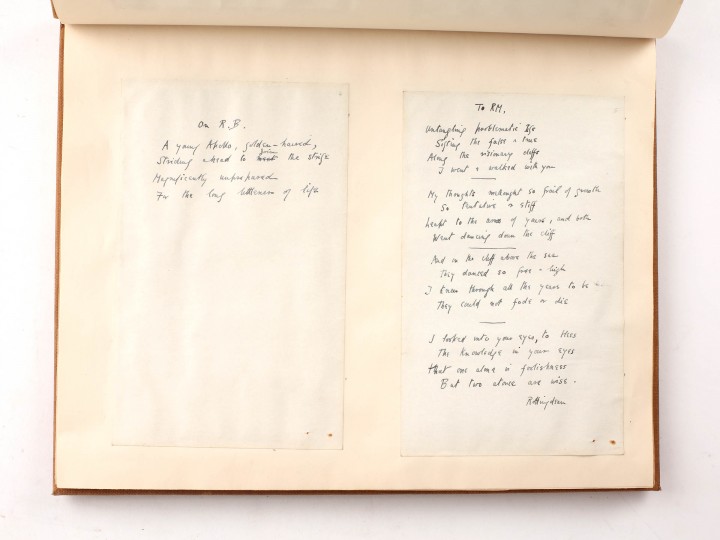 On R.B.
A young Apollo, golden-haired,
Striding ahead to the strife
Magnificently unprepared
For the long littleness of life
To RM.
Untangling problematic
Sifting the false + true
Along the visionary cliffs
I went + walked with you
My thoughts methought so frail of growth
So tentative + stiff
Leapt to the arms of yours, and both
Went dancing down the cliff
And on the cliff above the sea
They danced so free + high
I knew through all the years to be
They could not fade or die
I looked into your eyes, to
The knowledge in your eyes
That one alone is foolishness
But two alone are wise.
Rottingdean